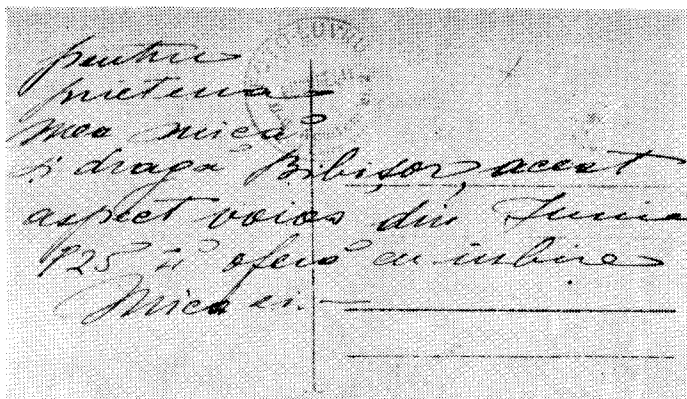 pentru
prietena
mea mică
și dragă Bibișor, acest
aspect voios din Iunie
925 îi oferă cu iubire
Mica ei. —